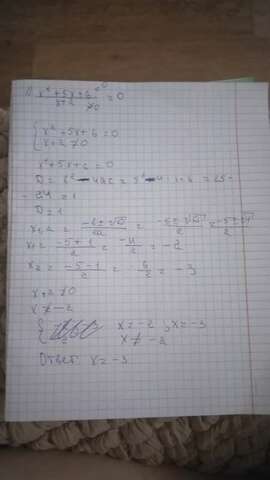 1) x² + 5x + 6 / x + 2 = 0
=0
≠0
{ x² + 5x + 6 = 0
x + 2 ≠ 0
x² + 5x + 6 = 0
D = b² - 4ac = 5² - 4 · 1 · 6 = 25 -
- 24 = 1
D = 1
x1,2 = -b ± √D / 2a = -5 ± √1 / 2 = -5 ± 1 / 2
x1 = -5 + 1 / 2 = -4 / 2 = -2
x2 = -5 - 1 / 2 = -6 / 2 = -3
x + 2 ≠ 0
x ≠ -2
{ x = -2, x = -3
x ≠ -2
Ответ x = -3